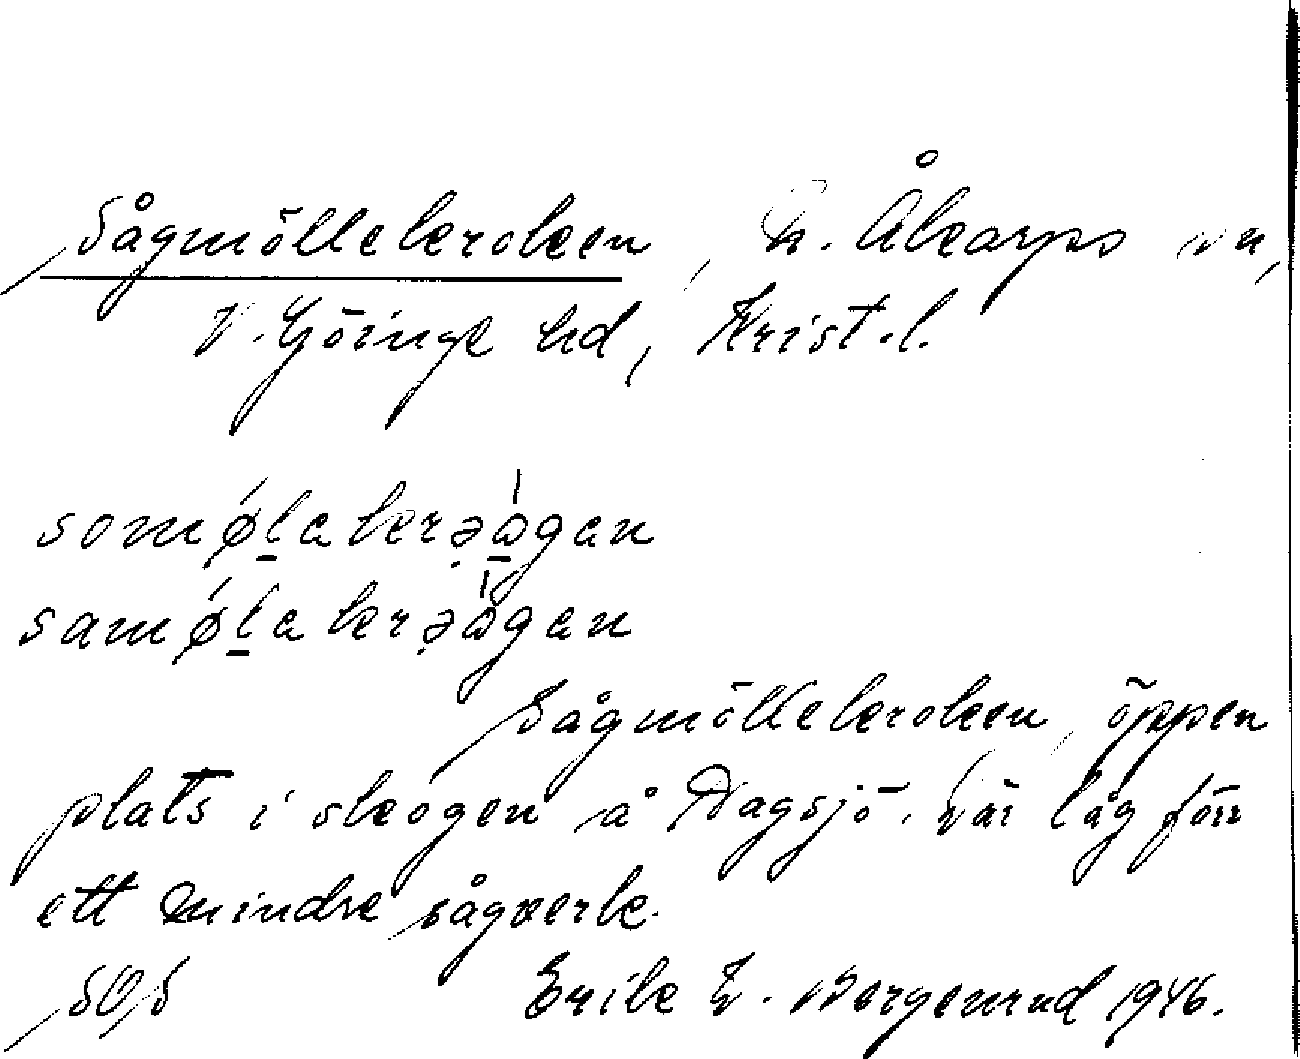 Sågmöllekroken, N. Åkarps sn,
V. Göinge hd, Krist. l.
somǿ̠la krəωgan
samǿ̠la krəωgan
Sågmöllekroken, öppen
plats i skogen å Nagsjö. Där låg förr
ett mindre sågverk.
SOS Erik E. Bergenrud 1946.